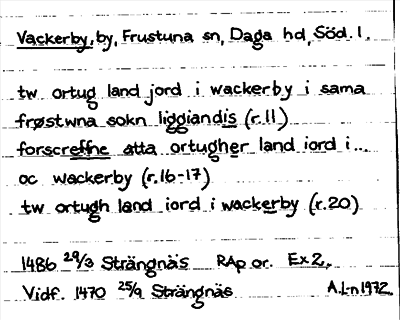 Vackerby, by, Frustuna sn, Daga hd, Söd. l.
tw ortug land jord i wackerby i sama
frøstwna sokn liggiandis (r.11)
forscreffne atta ortugher land iord i...
oc wackerby (r.16-17)
tw ortugh land iord i wackerby (r.20)
1486 29/3 Strängnäs RAp or. Ex 2.
Vidf. 1470 25/9 Strängnäs A.L-n 1972.